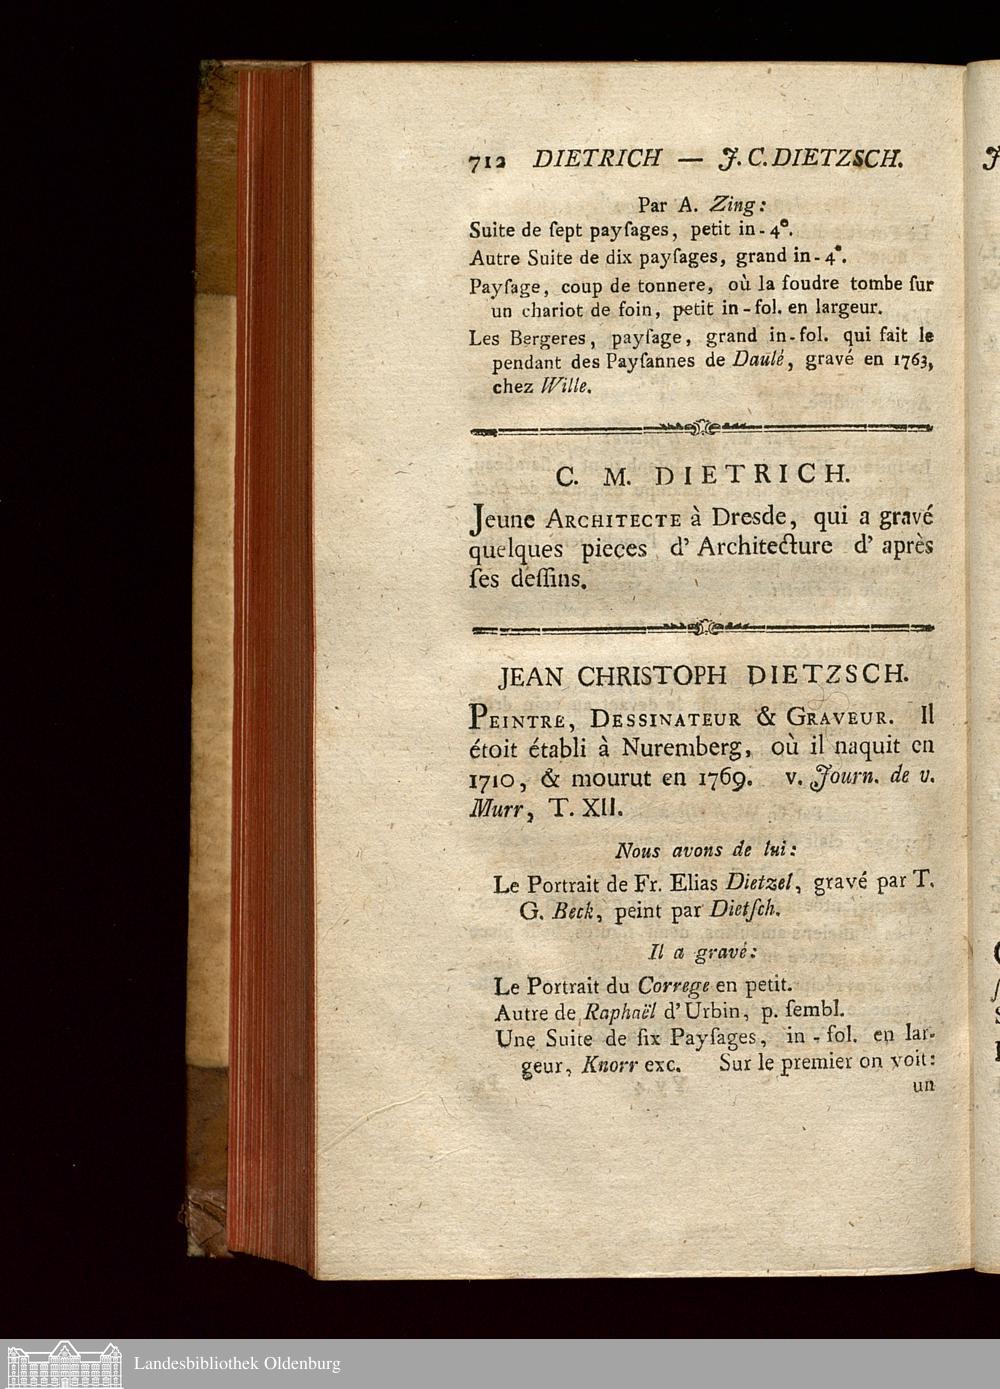 712 DIETRICH — J. C. DIETZSCH.
Par A. Zing:
Suite de ſept payſages, petit in-4°.
Autre Suite de dix payſages, grand in-4°.
Payſage, coup de tonnere, où la foudre tombe ſur
un chariot de foin, petit in-fol. en largeur.
Les Bergeres, payſage, grand in-fol. qui fait le
pendant des Payſannes de Daulé, gravé en 1763,
chez Wille.
C. M. DIETRICH.
Jeune ARCHITECTE à Dresde, qui a gravé
quelques pieces d' Architecture d' après
ſes deſſins.
JEAN CHRISTOPH DIETZSCH.
PEINTRE, DESSINATEUR & GRAVEUR. Il
étoit établi à Nuremberg, où il naquit en
1710, & mourut en 1769. v. Journ. de v.
Murr, T. XII.
Nous avons de lui:
Le Portrait de Fr. Elias Dietzel, gravé par T.
G. Beck, peint par Dietſch.
Il a gravé:
Le Portrait du Correge en petit.
Autre de Raphaël d'Urbin, p. ſembl.
Une Suite de ſix Payſages, in-fol. en lar-
geur, Knorr exc. Sur le premier on voit:
un
Landesbibliothek Oldenburg